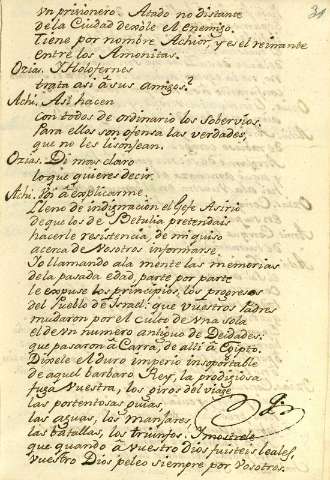 31
vn prisionero. Atado no distante
de la Ciudad dexòle el enemigo.
Tiene por nombre Achior, y es el reinante
entre los Amonitas.
Ozias. Y Holofernes
trata asi à sus amigos?
Achi. Asi hacen
con todos de ordinario los sobervios.
Para ellos son ofensa las verdades,
que no les lisonjean.
Ozias. Di mas claro
lo que quieres decir.
Achi. Voi à explicarme.
Lleno de indignacion el Gefe Asirio
de que los de Betulia pretendais
hacerle resistencia, de mi quiso
acerca de Vosotros informarse.
Yo llamando ala mente las memorias
de la pasada edad, parte por parte
le expuse los principios, los progresos
del Pueblo de Israel: que vuestros Padres
mudaron por el culto de vna sola
el de vn numero antiguo de Deidades:
que pasaron à Carra, de alli à Egipto.
Dixele el duro imperio insoportable
de aquel barbaro Rey, la prodigiosa
fuga vuestra, los giros del viage,
las portentosas guias,
las aguas, los manjares,
las batallas, los triunfos. Y mostrele
que quando à vuestro Dios fuisteis leales,
vuestro Dios peleò siempre por Vosotros.